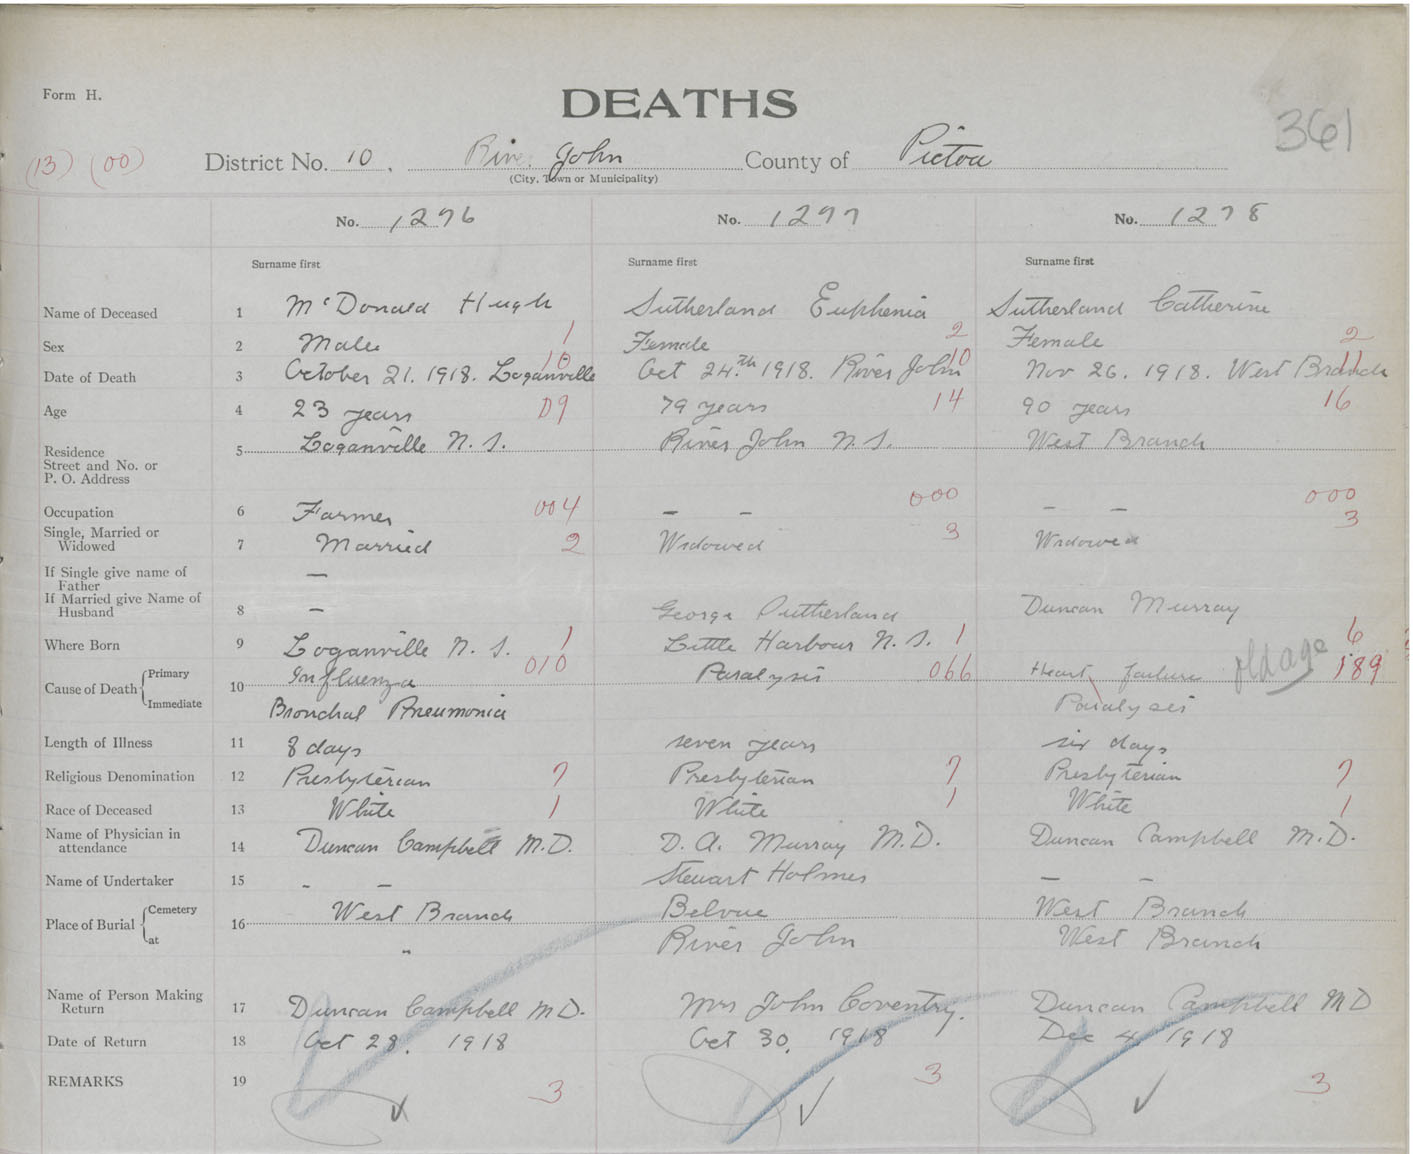 Form H.
DEATHS
361
(13) (00)
District No. 10, River John County of Pictou
(City, Town or Municipality)
No. 1276 No. 1277 No. 1278
Surname first Surname first Surname first
Name of Deceased 1 McDonald Hugh Sutherland Euphenia Sutherland Catherine
Sex 2 Male 1 Female 2 Female 2
10 10 11
Date of Death 3 October 21. 1918. Loganville Oct 24th 1918. River John Nov 26. 1918. West Branch
Age 4 23 years 09 79 years 14 90 years 16
Residence 5 Loganville N. S. River John N. S. West Branch
Street and No. or
P. O. Address
Occupation 6 Farmer 004 - - 000 - - 000
Single, Married or
Widowed 7 Married 2 Widowed 3 Widowed 3
If Single give name of
Father —
If Married give Name of
Husband 8 — George Sutherland Duncan Murray
Where Born 9 Loganville N. S. 1 Little Harbour N. S. 1 6
Cause of Death Primary 10 Influenza 010 Paralysis 066 Heart failure old age 189
Immediate Bronchal Pneumonia Paralysis
Length of Illness 11 8 days seven years six days
Religious Denomination 12 Presbyterian 7 Presbyterian 7 Presbyterian 7
Race of Deceased 13 White 1 White 1 White 1
Name of Physician in
attendance 14 Duncan Campbell M.D. D. A. Murray M.D. Duncan Campbell M.D.
Name of Undertaker 15 - - Stewart Holmes - -
Place of Burial Cemetery 16 West Branch Belvue West Branch
at " River John West Branch
Name of Person Making
Return 17 Duncan Campbell M D. Mrs John Coventry. Duncan Campbell M D
Date of Return 18 Oct 28. 1918 Oct 30, 1918 Dec 4 1918
REMARKS 19 3 3 3